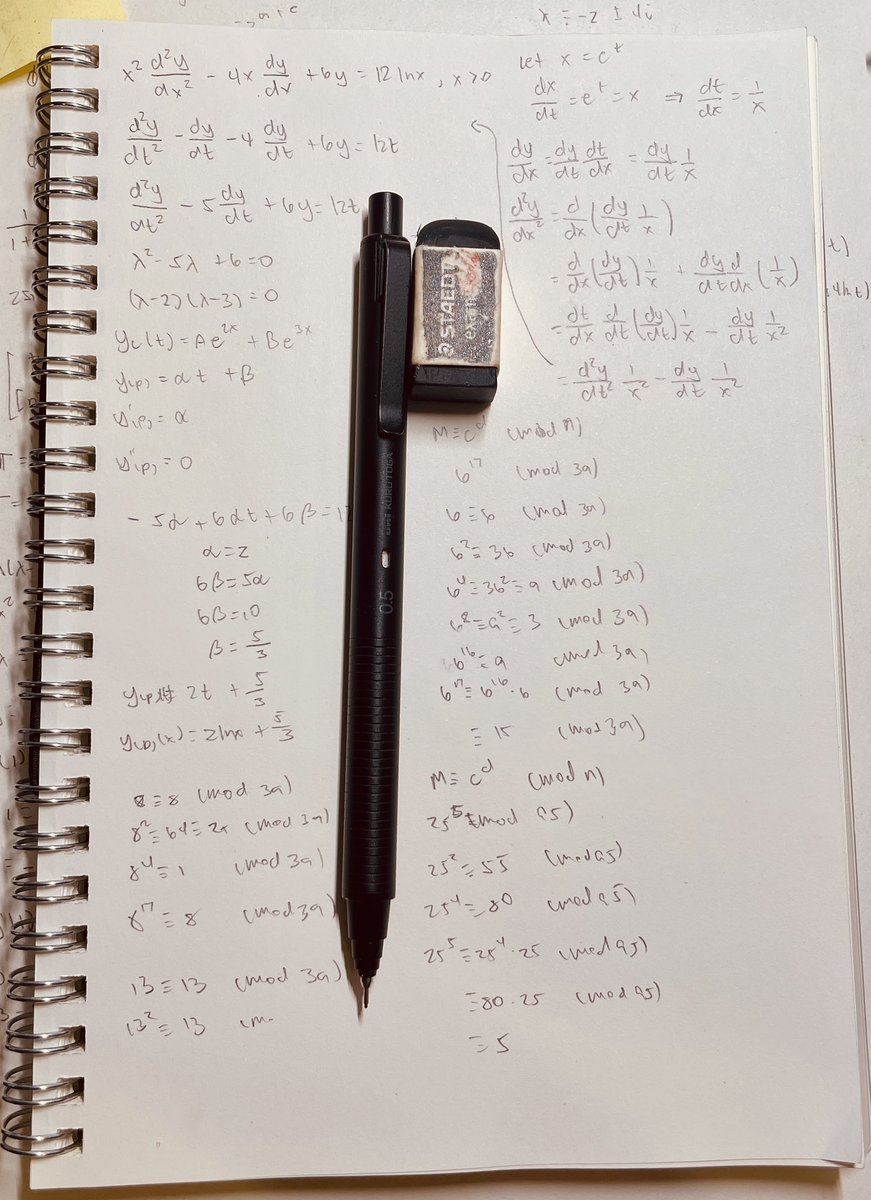 x² d²y/dx² - 4x dy/dx + 6y = 12 lnx, x>0
d²y/dt² - dy/dt - 4 dy/dt + 6y = 12t
d²y/dt² - 5 dy/dt + 6y = 12t
λ² - 5λ + 6 = 0
(λ-2)(λ-3) = 0
yc(t) = Ae^2x + Be^3x
y(p) = αt + β
y'(p) = α
y''(p) = 0
- 5α + 6αt + 6β = 1
α = 2
6β = 5α
6β = 10
β = 5/3
2t + 5/3
y(p)(x) = 2lnx + 5/3
8 ≡ 8 (mod 39)
8² ≡ 64 ≡ 25 (mod 39)
8⁴ ≡ 1 (mod 39)
8¹⁷ ≡ 8 (mod 39)
13 ≡ 13 (mod 39)
13² ≡ 13 (m
let x = e^t
dx/dt = e^t = x ⇒ dt/dx = 1/x
dy/dx = dy/dt dt/dx = dy/dt 1/x
d²y/dx² = d/dx (dy/dt 1/x)
= d/dx (dy/dt) 1/x + dy/dt d/dx (1/x)
= dt/dx d/dt (dy/dt) 1/x - dy/dt 1/x²
= d²y/dt² 1/x² - dy/dt 1/x²
M ≡ c^d (mod n)
6¹⁷ (mod 39)
6 ≡ 6 (mod 39)
6² ≡ 36 (mod 39)
6⁴ ≡ 36² ≡ 9 (mod 39)
6⁸ ≡ 9² ≡ 3 (mod 39)
6¹⁶ ≡ 9 (mod 39)
6¹⁷ ≡ 6¹⁶ · 6 (mod 39)
≡ 15 (mod 39)
M ≡ c^d (mod n)
25⁵ (mod 95)
25² ≡ 55 (mod 95)
25⁴ ≡ 80 (mod 95)
25⁵ ≡ 25⁴ · 25 (mod 95)
≡ 80 · 25 (mod 95)
≡ 5
STAEDT
uni KURUTOGA
0.5
x = -2 ± 4i